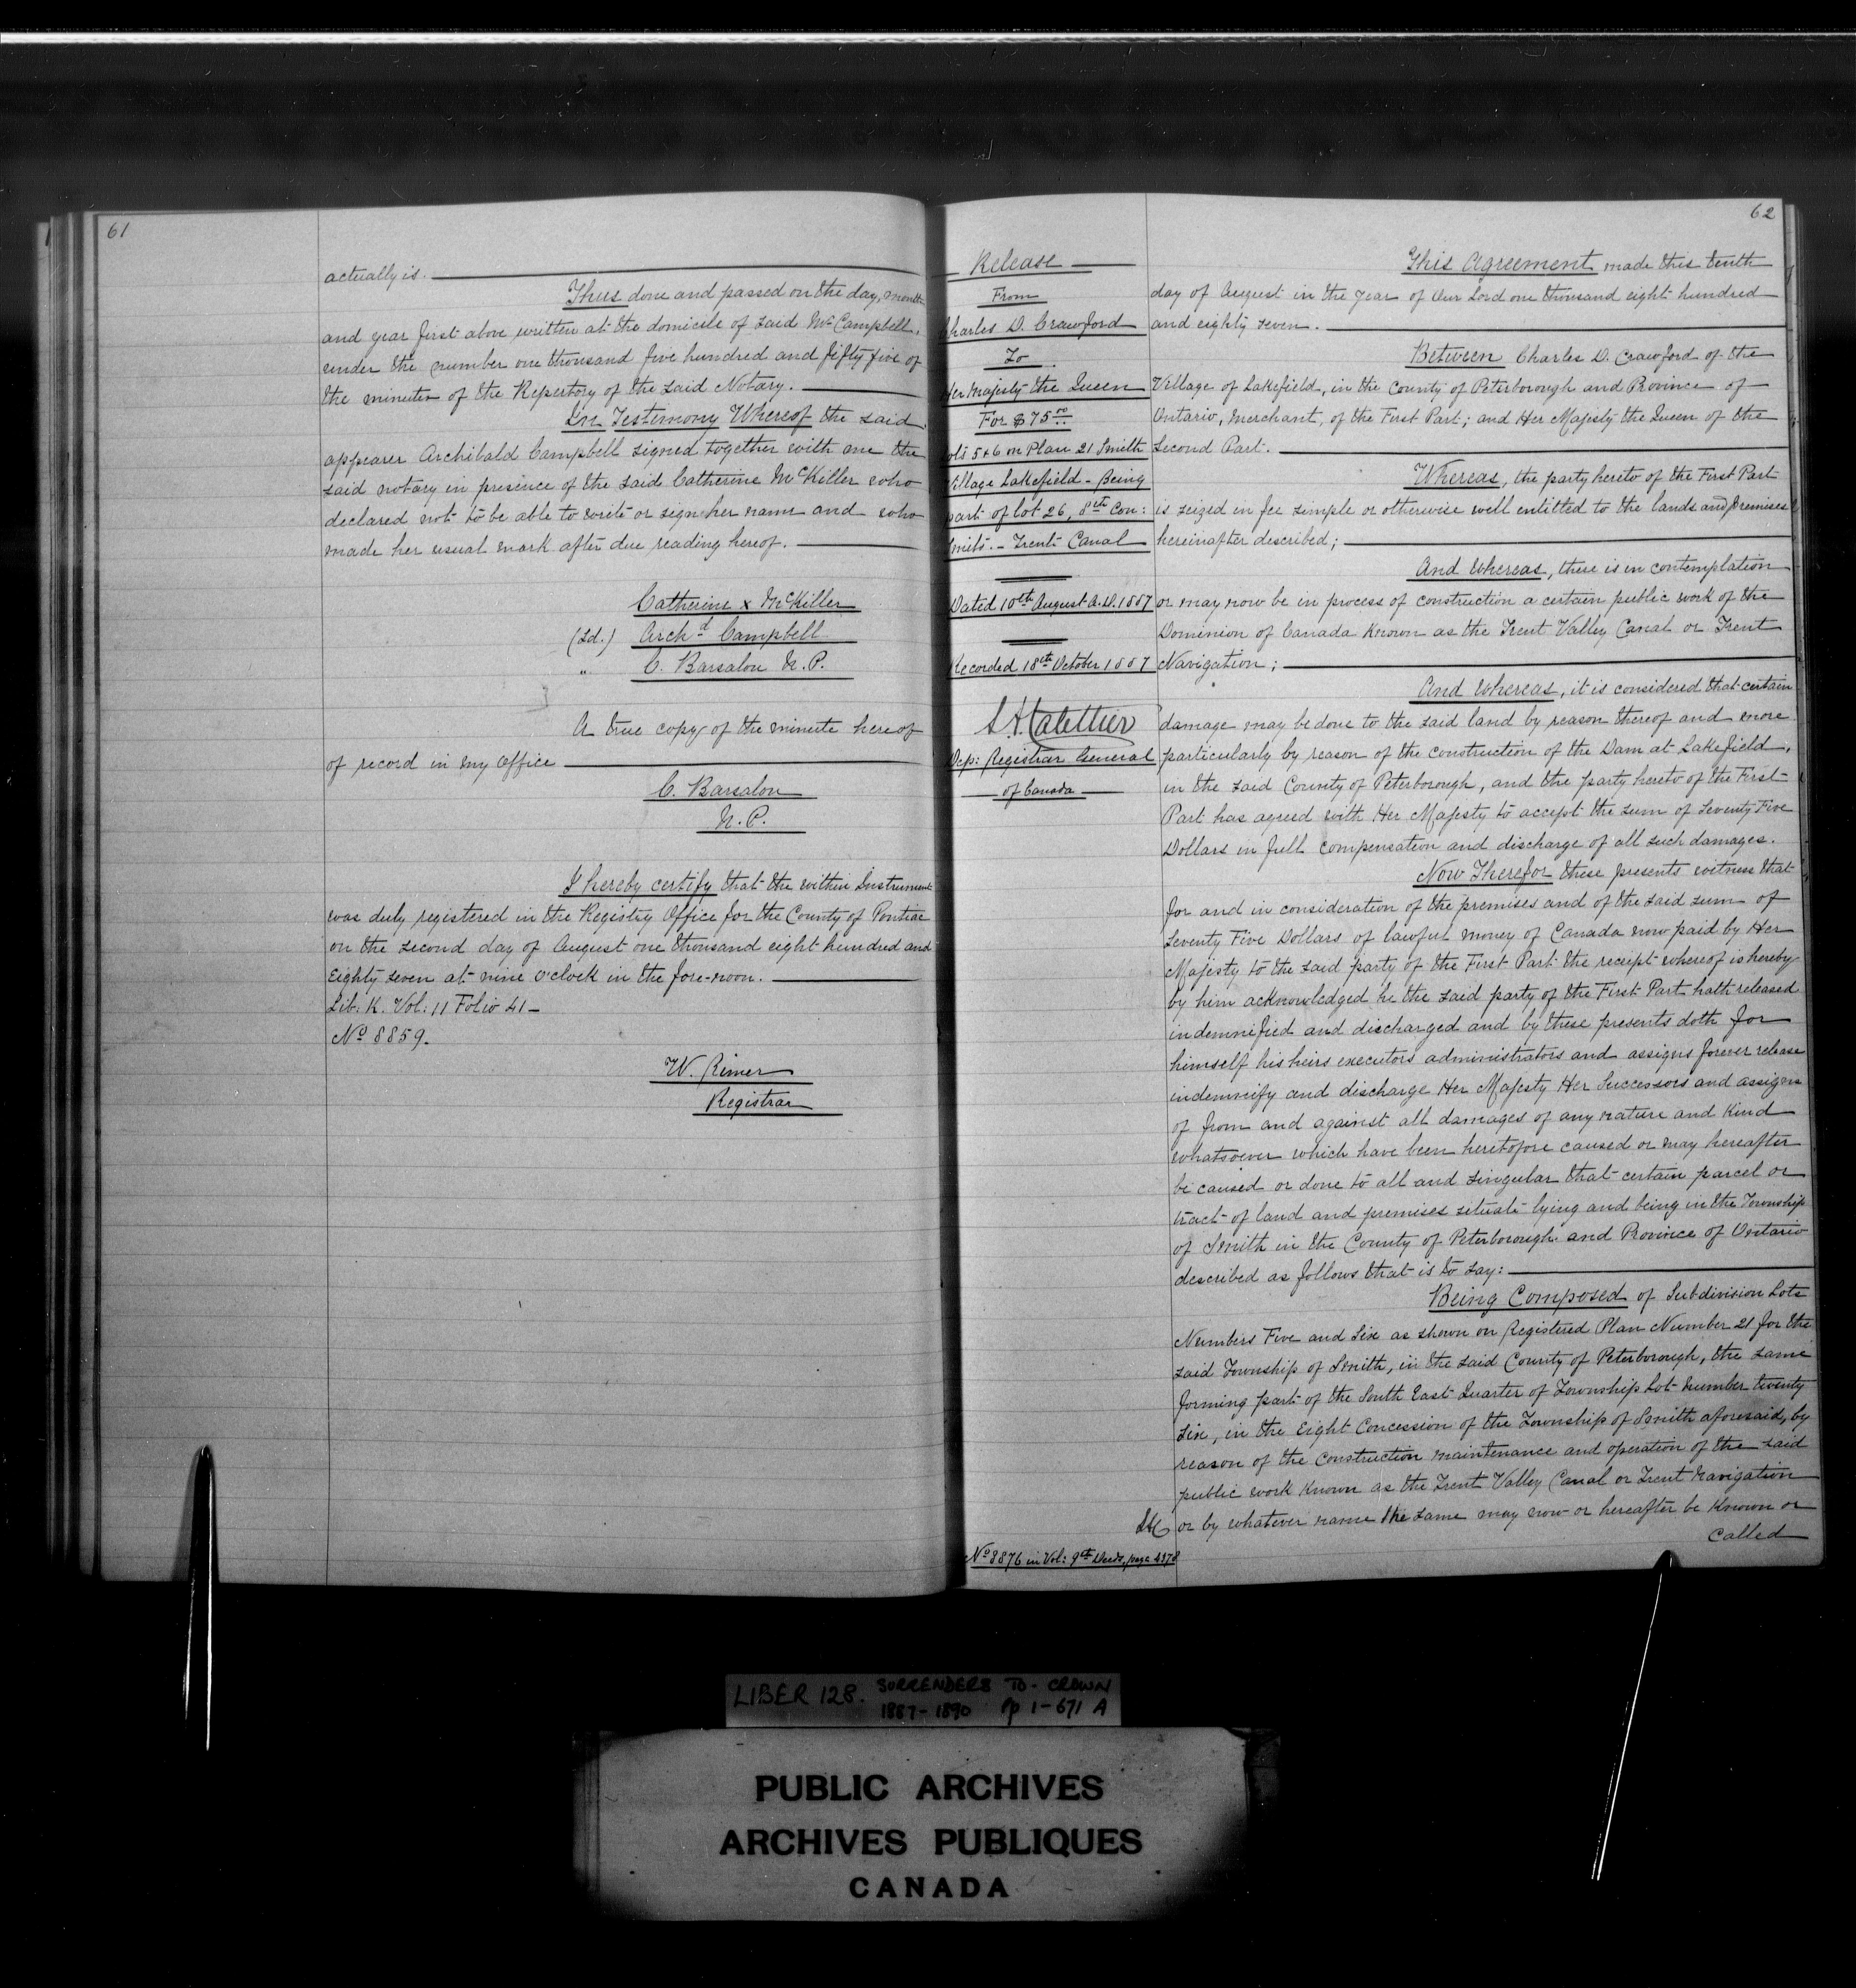 61
actually is.
Thus done and passed on the day, month
and year first above written at the domicile of said Mr. Campbell,
under the number one thousand five hundred and fifty five of
the minutes of the Repertory of the said Notary.
In Testimony Whereof the said
appearer Archibald Campbell signed together with me the
said notary in presence of the said Catherine McKiller who
declared not to be able to write or sign her name and who
made her usual mark after due reading hereof.
Catherine x McKiller
(Sd.) Archd Campbell
" C. Barsalou N.P.
A true copy of the minute hereof
of record in my Office
C. Barsalou
N.P.
I hereby certify that the within Instrument
was duly registered in the Registry Office for the County of Pontiac
on the second day of August one thousand eight hundred and
Eighty seven at nine o'clock in the fore-noon.
Lib: K. Vol: 11 Folio 41-
No 8859.
W. Rimer
Registrar
62
Release
From
Charles D. Crawford
To
Her Majesty the Queen
For $75.00
Lots 5 & 6 on Plan 21 Smith
Village Lakefield - Being
part of lot 26, 8th Con:
Smith. - Trent Canal
Dated 10th August A.D. 1887
Recorded 18th October 1887
Dep: Registrar General
of Canada
This Agreement made this tenth
day of August in the year of Our Lord one thousand eight hundred
and eighty seven.
Between Charles D. Crawford of the
Village of Lakefield, in the County of Peterborough and Province of
Ontario, Merchant, of the First Part; and Her Majesty the Queen of the
Second Part.
Whereas, the party hereto of the First Part
is seized in fee simple or otherwise well entitled to the lands and premises
hereinafter described;
And Whereas, there is in contemplation
or may now be in process of construction a certain public work of the
Dominion of Canada known as the Trent Valley Canal or Trent
Navigation;
And whereas, it is considered that certain
damage may be done to the said land by reason thereof and more
particularly by reason of the construction of the Dam at Lakefield,
in the said County of Peterborough, and the party hereto of the First
Part has agreed with Her Majesty to accept the sum of Seventy Five
Dollars in full compensation and discharge of all such damages.
Now Therefor these presents witness that
for and in consideration of the premises and of the said sum of
Seventy Five Dollars of lawful money of Canada now paid by Her
Majesty to the said party of the First Part the receipt whereof is hereby
by him acknowledged he the said party of the First Part hath released
indemnified and discharged and by these presents doth for
himself his heirs executors administrators and assigns forever release
indemnify and discharge Her Majesty Her Successors and assigns
of from and against all damages of any nature and kind
whatsoever which have been heretofore caused or may hereafter
be caused or done to all and singular that certain parcel or
tract of land and premises situate lying and being in the Township
of Smith in the County of Peterborough and Province of Ontario
described as follows that is to say:
Being Composed of Subdivision Lots
Numbers Five and Six as shown on Registered Plan Number 21 for the
said Township of Smith, in the said County of Peterborough, the same
forming part of the South East Quarter of Township Lot Number twenty
six, in the Eight Concession of the Township of Smith aforesaid, by
reason of the Construction maintenance and operation of the said
public work known as the Trent Valley Canal or Trent Navigation
or by whatever name the same may now or hereafter be known or
called
No 8876 in Vol: 9th Deeds, page 4378
LIBER 128. SURRENDERS TO CROWN
1887-1890 pp 1-671 A
PUBLIC ARCHIVES
ARCHIVES PUBLIQUES
CANADA